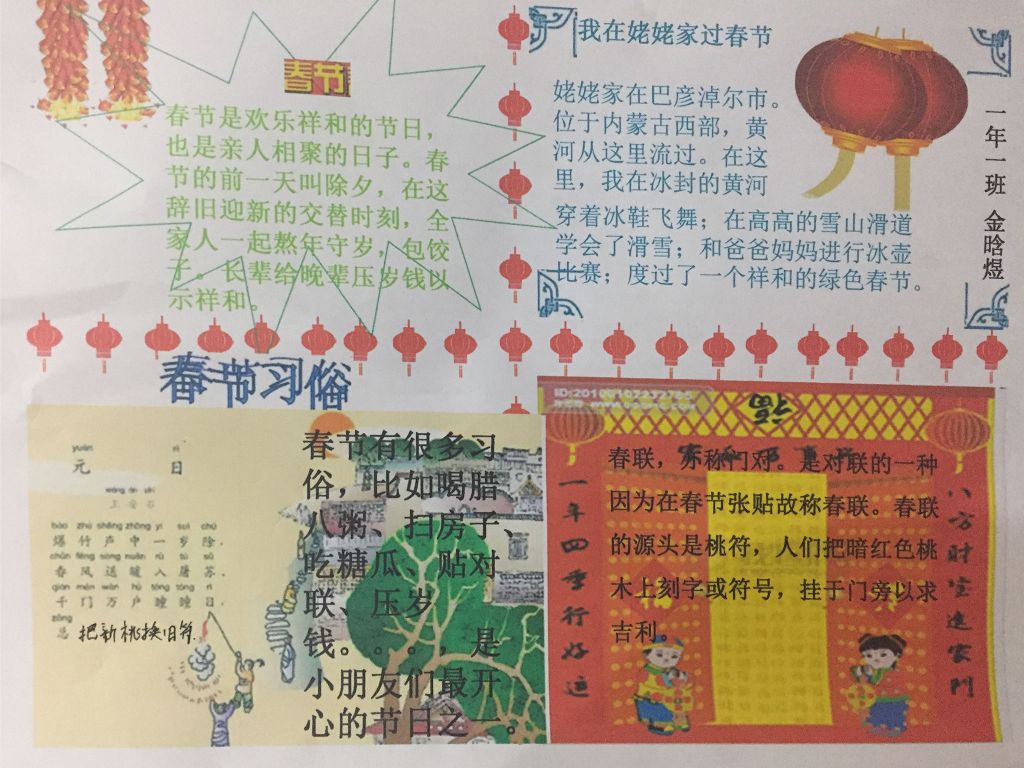 春节
春节是欢乐祥和的节日，
也是亲人相聚的日子。春
节的前一天叫除夕，在这
辞旧迎新的交替时刻，全
家人一起熬年守岁，包饺
子。长辈给晚辈压岁钱以
示祥和。
我在姥姥家过春节
姥姥家在巴彦淖尔市。
位于内蒙古西部，黄
河从这里流过。在这
里，我在冰封的黄河
穿着冰鞋飞舞；在高高的雪山滑道
学会了滑雪；和爸爸妈妈进行冰壶
比赛；度过了一个祥和的绿色春节。
一年一班 金晗煜
春节习俗
yuán rì
元 日
王安石
bào zhú shēng zhōng yí suì chú
爆竹声中一岁除，
chūn fēng sòng nuǎn rù tú sū
春风送暖入屠苏。
qiān mén wàn hù tóng tóng rì
千门万户曈曈日，
zǒng
总把新桃换旧符
春节有很多习
俗，比如喝腊
八粥、扫房子、
吃糖瓜、贴对
联、压岁
钱。。。，是
小朋友们最开
心的节日之一。
福
一年四季行好运
八方财宝进家门
春联，亦称门对。是对联的一种
因为在春节张贴故称春联。春联
的源头是桃符，人们把暗红色桃
木上刻字或符号，挂于门旁以求
吉利。